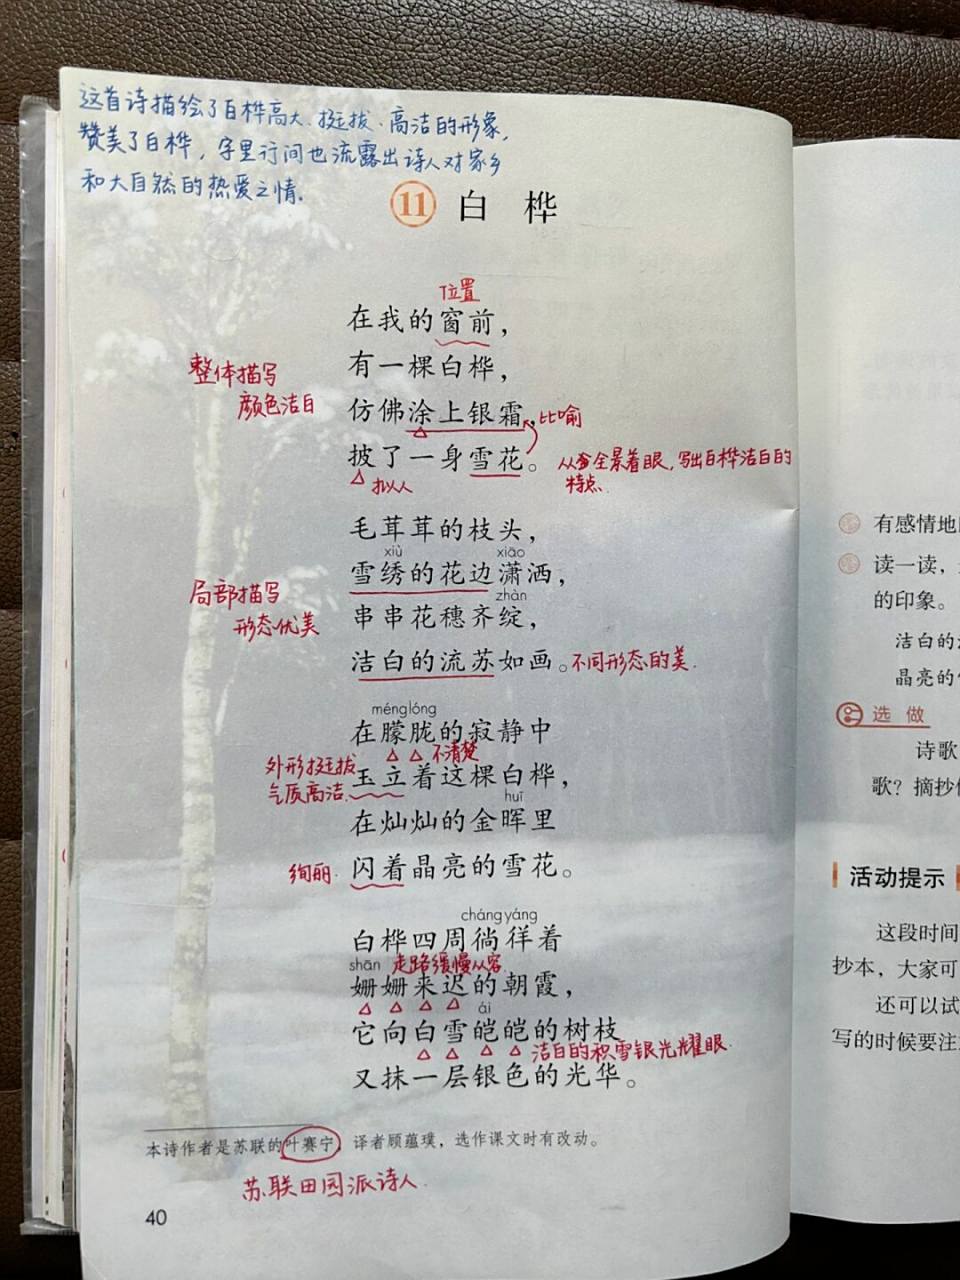 这首诗描绘了白桦高大、挺拔、高洁的形象,
赞美了白桦,字里行间也流露出诗人对家乡
和大自然的热爱之情.
11 白桦
位置
在我的窗前，
有一棵白桦，
整体描写
颜色洁白
仿佛涂上银霜，
比喻
披了一身雪花。
拟人
从全景着眼,写出白桦洁白的
特点.
毛茸茸的枝头，
xiù xiāo
雪绣的花边潇洒，
局部描写
形态优美
zhàn
串串花穗齐绽，
洁白的流苏如画。
不同形态的美.
ménglóng
在朦胧的寂静中
不清楚
外形挺拔
气质高洁.
玉立着这棵白桦，
huī
在灿灿的金晖里
绚丽.
闪着晶亮的雪花。
cháng yáng
白桦四周徜徉着
shān
走路缓慢从容
姗姗来迟的朝霞，
ái
它向白雪皑皑的树枝
洁白的积雪银光耀眼.
又抹一层银色的光华。
本诗作者是苏联的叶赛宁，译者顾蕴璞，选作课文时有改动。
苏联田园派诗人.
40
有感情地
读一读，
的印象。
洁白的
晶亮的
选做
诗歌
歌？摘抄
活动提示
这段时间
抄本，大家可
还可以试
写的时候要注